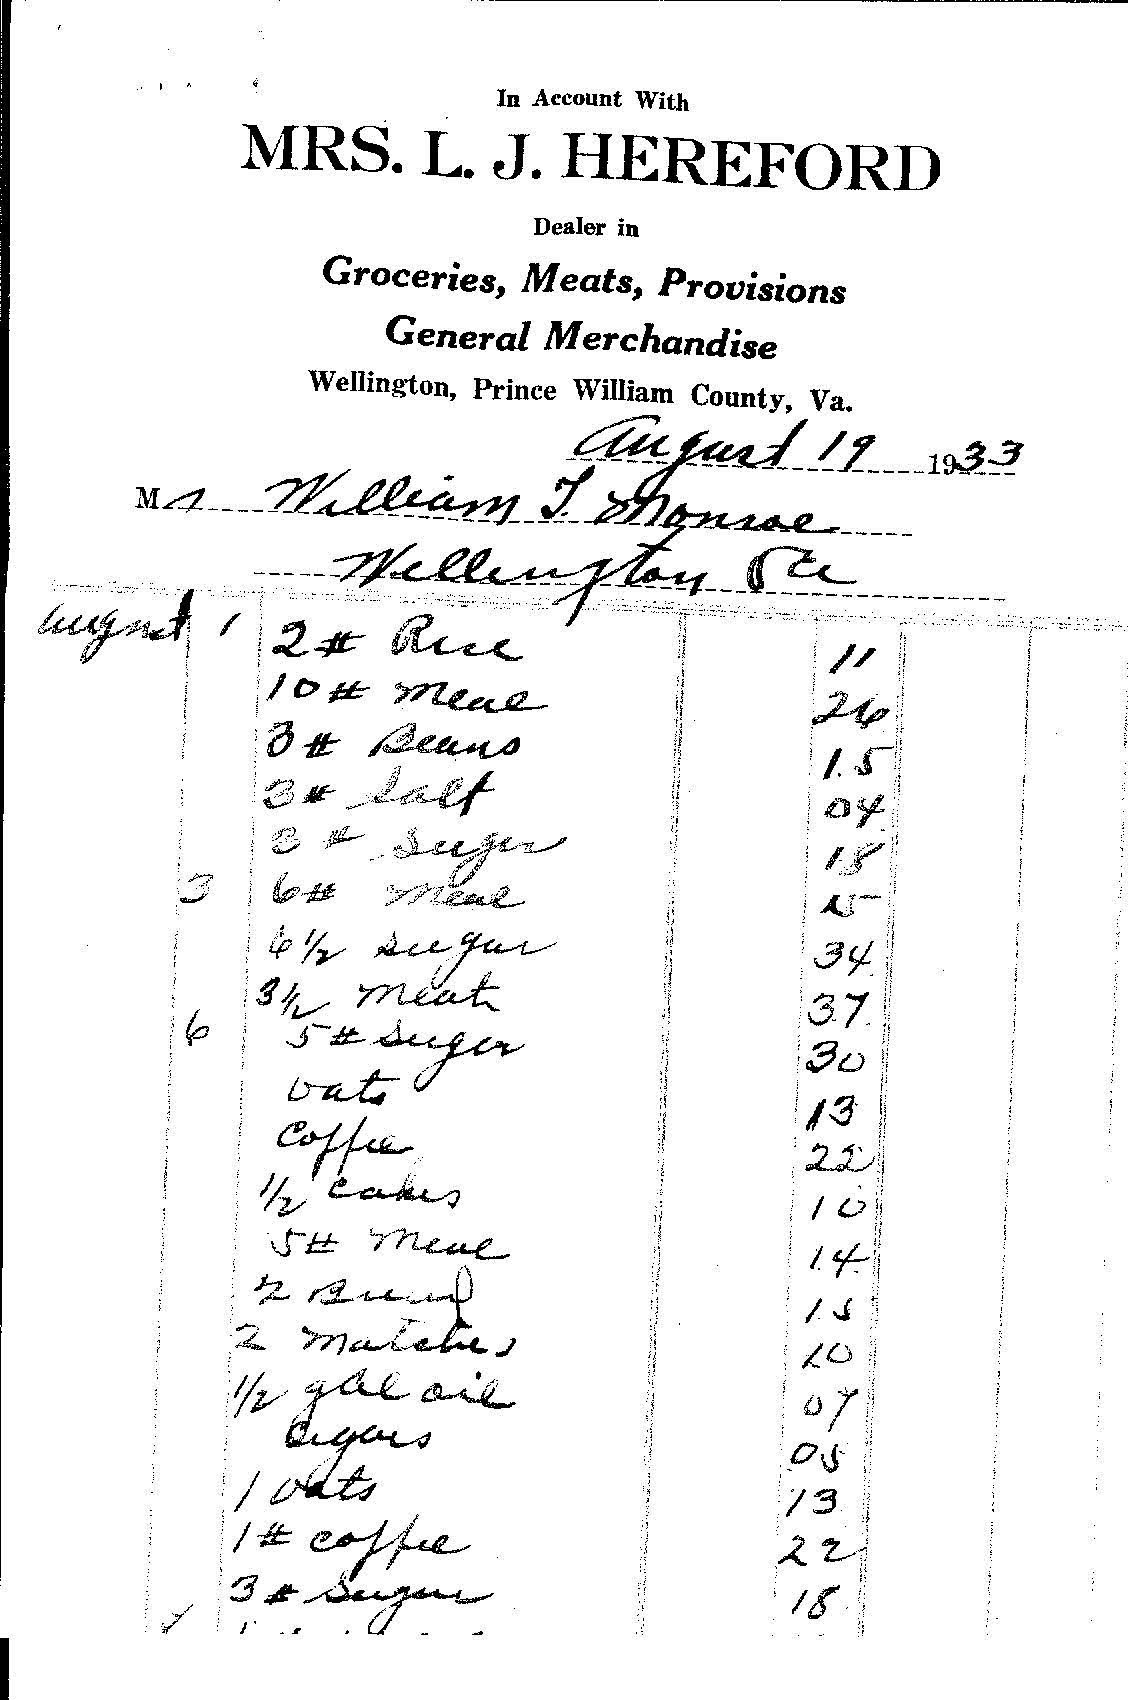 In Account With
MRS. L. J. HEREFORD
Dealer in
Groceries, Meats, Provisions
General Merchandise
Wellington, Prince William County, Va.
August 19 1933
Mr William T. Monroe
Wellington Va
August 1 2# Rice 11
10# Meal 26
3# Beans 15
3# Salt 04
3# Suger 18
3 6# Meal 15
6 1/2 Sugar 34
3 1/2 Meat 37
6 5# Suger 30
Oats 13
Coffee 22
1/2 Cakes 10
5# Meal 14
2 Bread 15
2 Matches 10
1/2 gal oil 07
Cigars 05
1 Oats 13
1# Coffee 22
3# Sugar 18